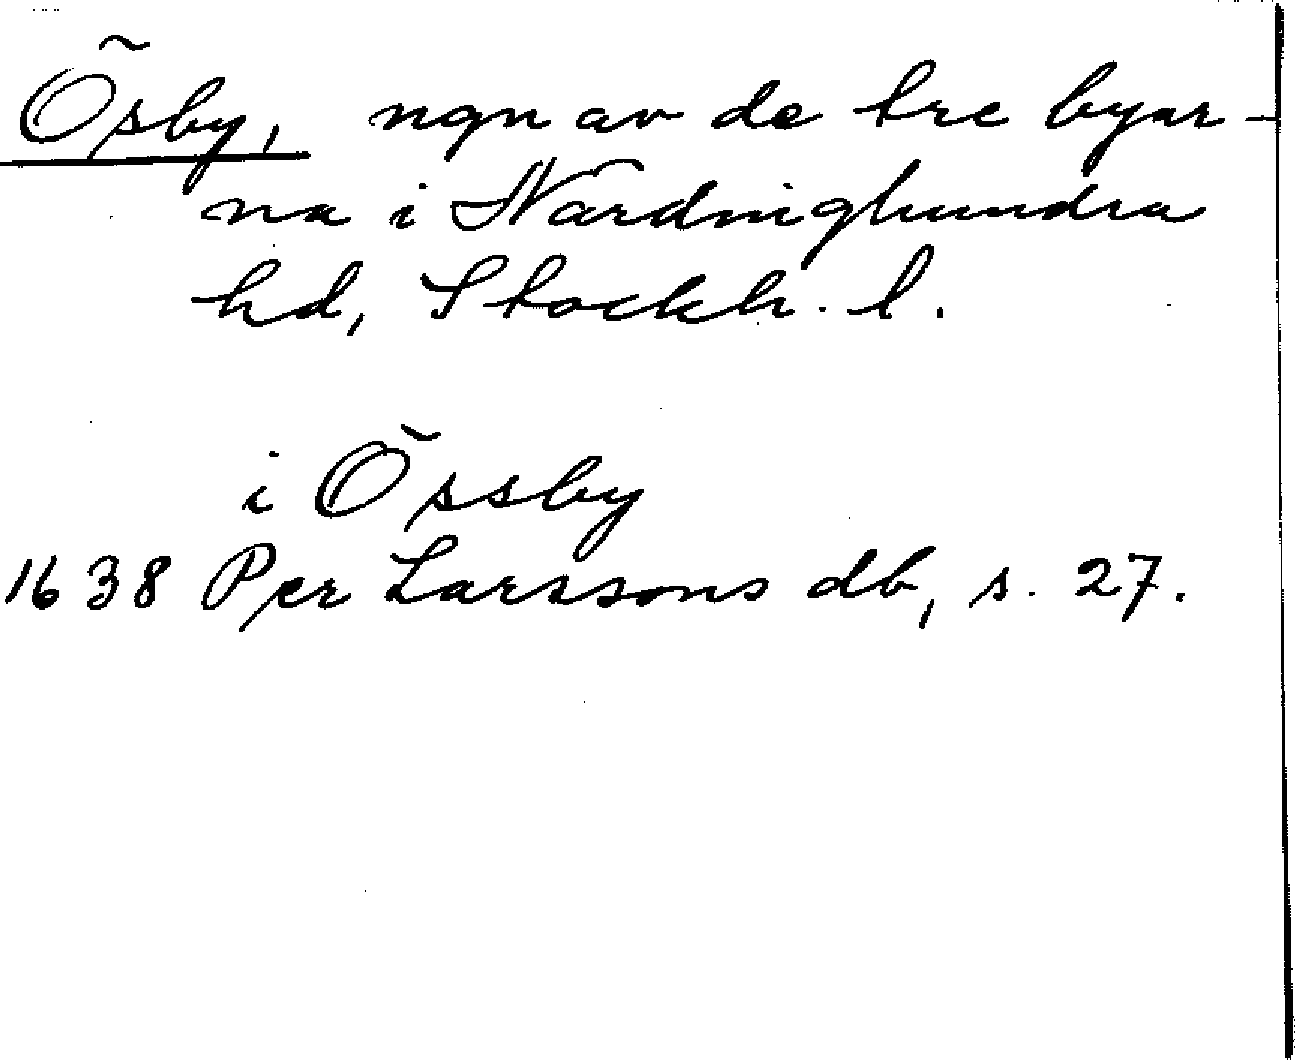 Ösby, ngn av de tre byar-
na i Närdinghundra
hd, Stockh. l.
i Össby
1638 Per Larssons db, s. 27.